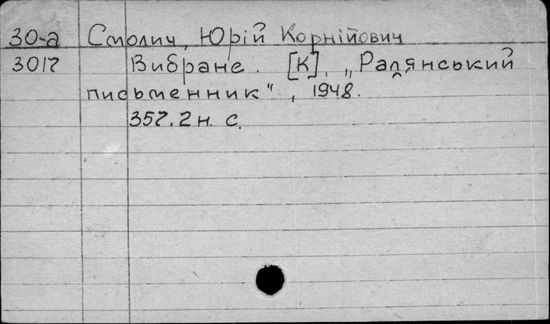 30-а Смолич, Юрій Корнійович
3017 Вибране. [К], „Радянський
письменник", 1948.
357.2 н. с.